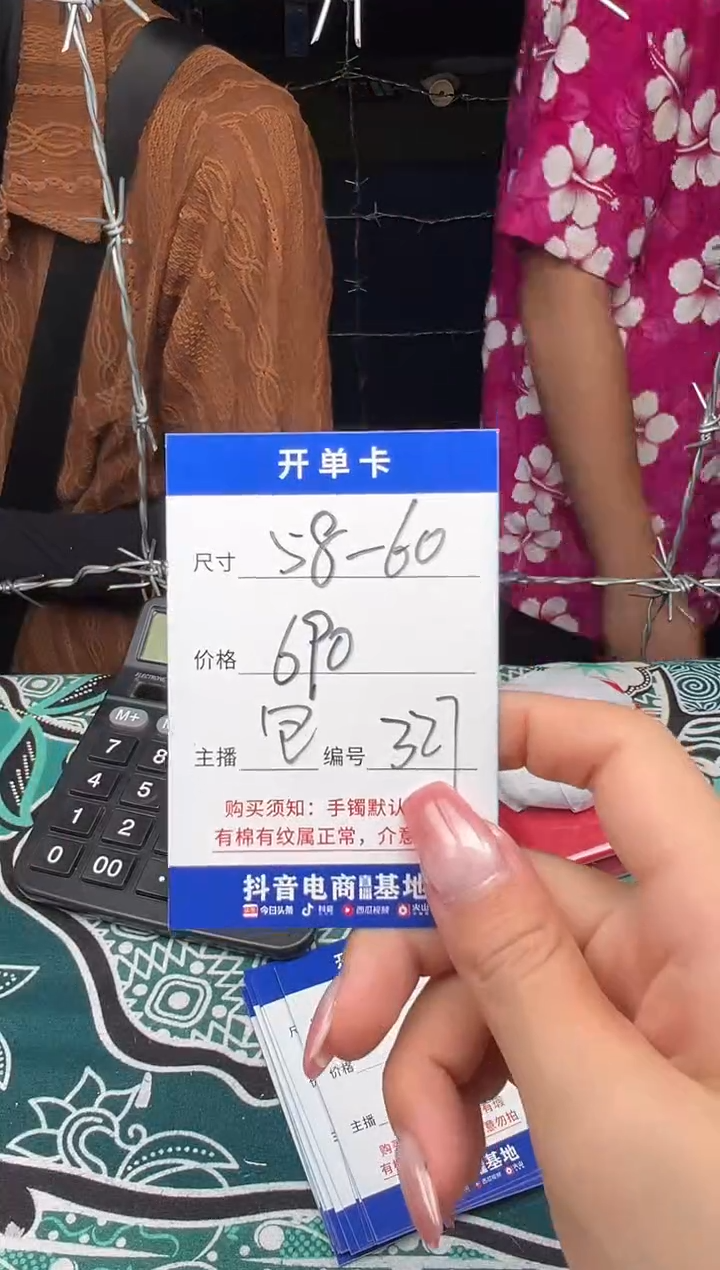 开单卡
尺寸 58-60
价格 690
主播 编号 327
购买须知：手镯默认
有棉有纹属正常，介意
抖音电商直播基地
今日头条 抖音 西瓜视频 火山
M+
7 8
4 5
1 2
0 00 .
价格
主播
有瑕
意勿拍
基地